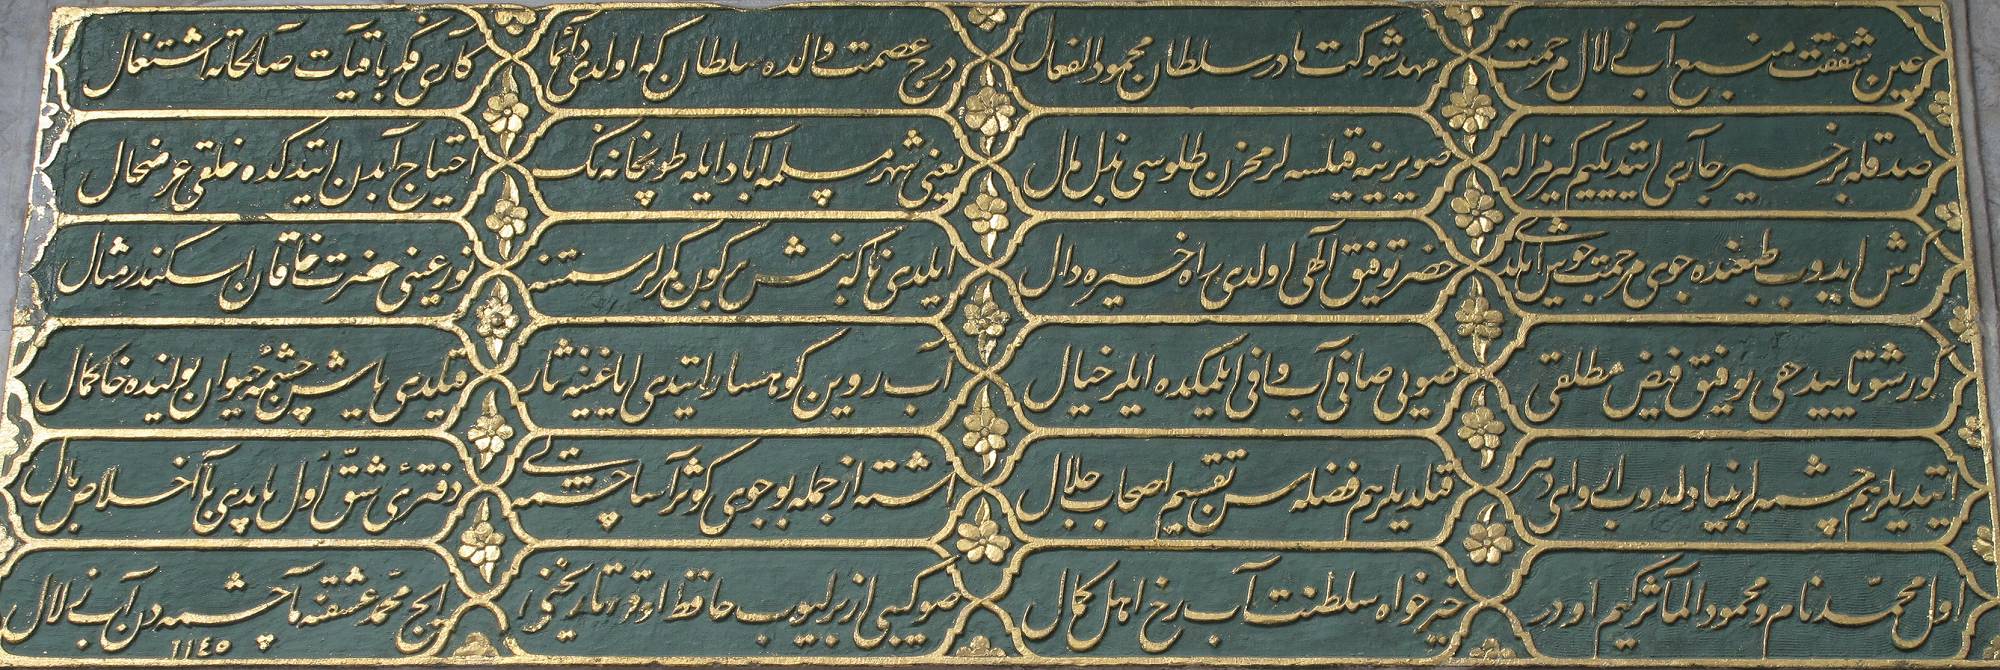 عین شفقت منبع آب زلال مرحمت
مهد شوکت مادر سلطان محمود الفعال
درج عصمت والده سلطان که اولدی دائما
کاری فکر باقیات صالحاته اشتغال
صدقله بر خیر جاری ایتدی کیم کیرمز اله
صو یرینه قیلسه لر مخزن طلوسی بذل مال
یعنی شهر مسلمه آباد ایله طوپخانه نک
احتیاج آبدن ایتدکده خلقی عرضحال
کوش ایدوب طبعنده جوی مرحمت جوش ایلدی
خضر توفیق الهی اولدی راه خیره دال
ایلدی ناکه بنش بر کون بکلر سمتنه
نور عینی حضرت خاقان اسکندر مثال
کور شو تایید حقی توفیق فیض مطلقی
صویی صافی آب وافی ایلمکده ایلر خیال
آب روین کوهسار ایتدی ایاغینه نثار
قیلدی یاشن چشمهٔ حیوان یولینده خاکمال
ایتدیلر هم چشمه لر بنیاد ایدوب اروای دهر
قیلدیلر هم فضله سن تقسیم اصحاب جلال
اشته از جمله بو جوی کوثر آسا چشمه یی
دفترئ شقّ اول یاپدی با اخلاص بال
اول محمّد نام و محمود المآثر کیم اودر
خیرخواه سلطنت آب رخ اهل کمال
صو کیبی ازبرلیوب حافظ اوقور تاریخنی
ایچ محمّد عشقنه ما چشمه دن آب زلال
١١٤٥